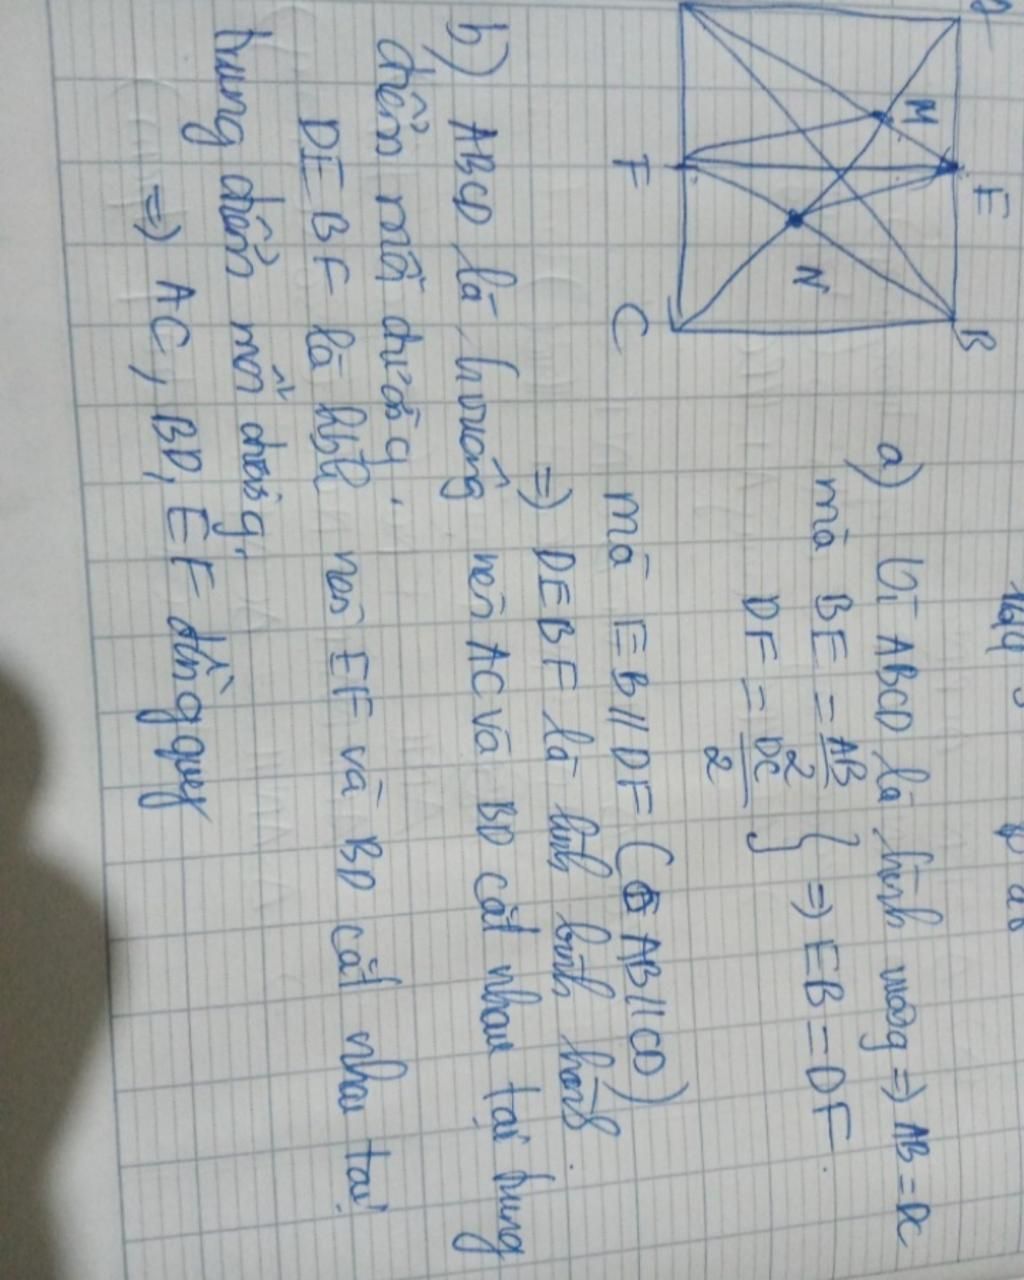 A
E
B
M
N
F
C
a) Vì ABCD là hình vuông => AB = DC
mà BE = AB/2
DF = DC/2 } => EB = DF.
mà EB // DF (AB // CD)
=> DEBF là hình bình hành.
b) ABCD là hvuông nên AC và BD cắt nhau tại trung
điểm mỗi đường.
DEBF là hbh nên EF và BD cắt nhau tại
trung điểm mỗi đường.
=> AC, BD, EF đồng quy